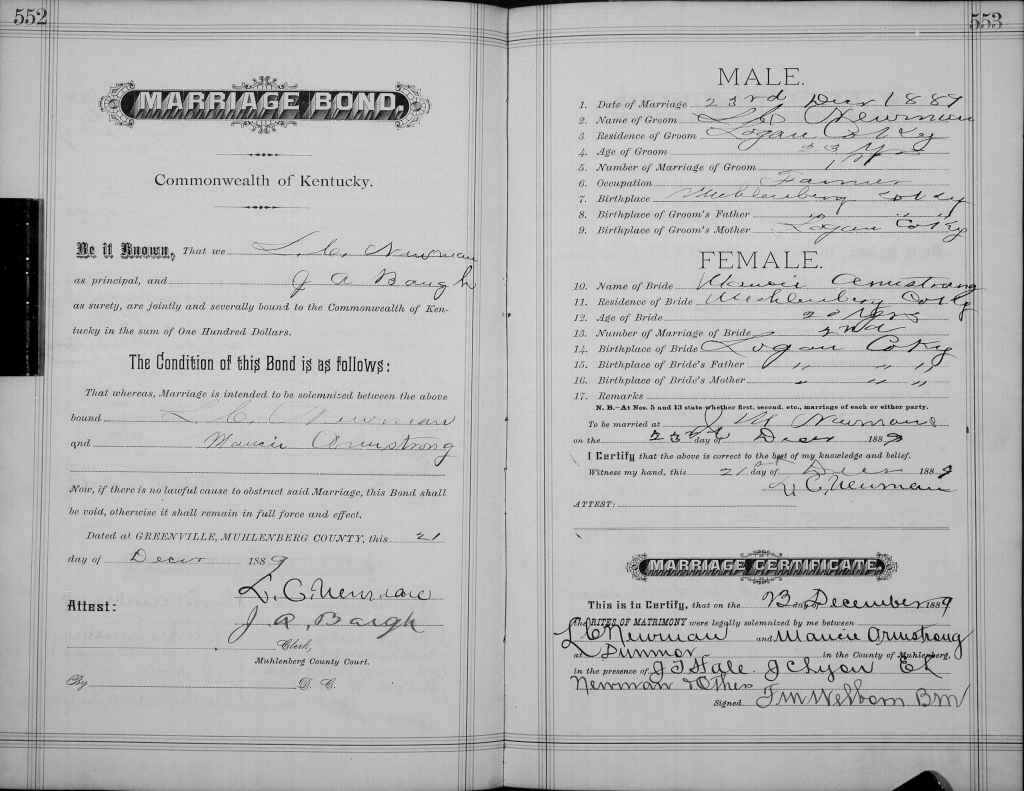 552
MARRIAGE BOND.
Commonwealth of Kentucky.
Be it Known, That we L. C. Newman
as principal, and J A Baugh
as surety, are jointly and severally bound to the Commonwealth of Ken-
tucky in the sum of One Hundred Dollars.
The Condition of this Bond is as follows:
That whereas, Marriage is intended to be solemnized between the above
bound L. C. Newman
and Mancie Armstrong
Now, if there is no lawful cause to obstruct said Marriage, this Bond shall
be void, otherwise it shall remain in full force and effect.
Dated at GREENVILLE, MUHLENBERG COUNTY, this 21
day of Decr 1889
L. C. Newman
Attest:
J. A. Baugh
Clerk,
Muhlenberg County Court.
By D. C.
553
MALE.
1. Date of Marriage 23rd Decr 1889
2. Name of Groom L C Newman
3 Residence of Groom Logan Co Ky
4. Age of Groom 33 Yrs
5. Number of Marriage of Groom 1
6. Occupation Farmer
7. Birthplace Muhlenberg Co Ky
8. Birthplace of Groom's Father " " "
9. Birthplace of Groom's Mother Logan Co Ky
FEMALE.
10. Name of Bride Mancie Armstrong
11. Residence of Bride Muhlenberg Co Ky
12. Age of Bride Yrs
13. Number of Marriage of Bride 2nd
14. Birthplace of Bride Logan Co Ky
15. Birthplace of Bride's Father " " "
16. Birthplace of Bride's Mother " " "
17. Remarks
N. B.—At Nos. 5 and 13 state whether first, second, etc., marriage of each or either party.
To be married at J M Newmans
on the 23rd day of Decr 1889
I Certify that the above is correct to the best of my knowledge and belief.
Witness my hand, this 21st day of Decr 1889
L. C. Newman
ATTEST:
MARRIAGE CERTIFICATE.
This is to Certify, that on the 23 day of December 1889
the RITES OF MATRIMONY were legally solemnized by me between
L C Newman and Mancie Armstrong
at Dunmor in the County of Muhlenberg.
in the presence of J T Hale J C Lyon E L
Newman & Others
Signed F M Welborn B M